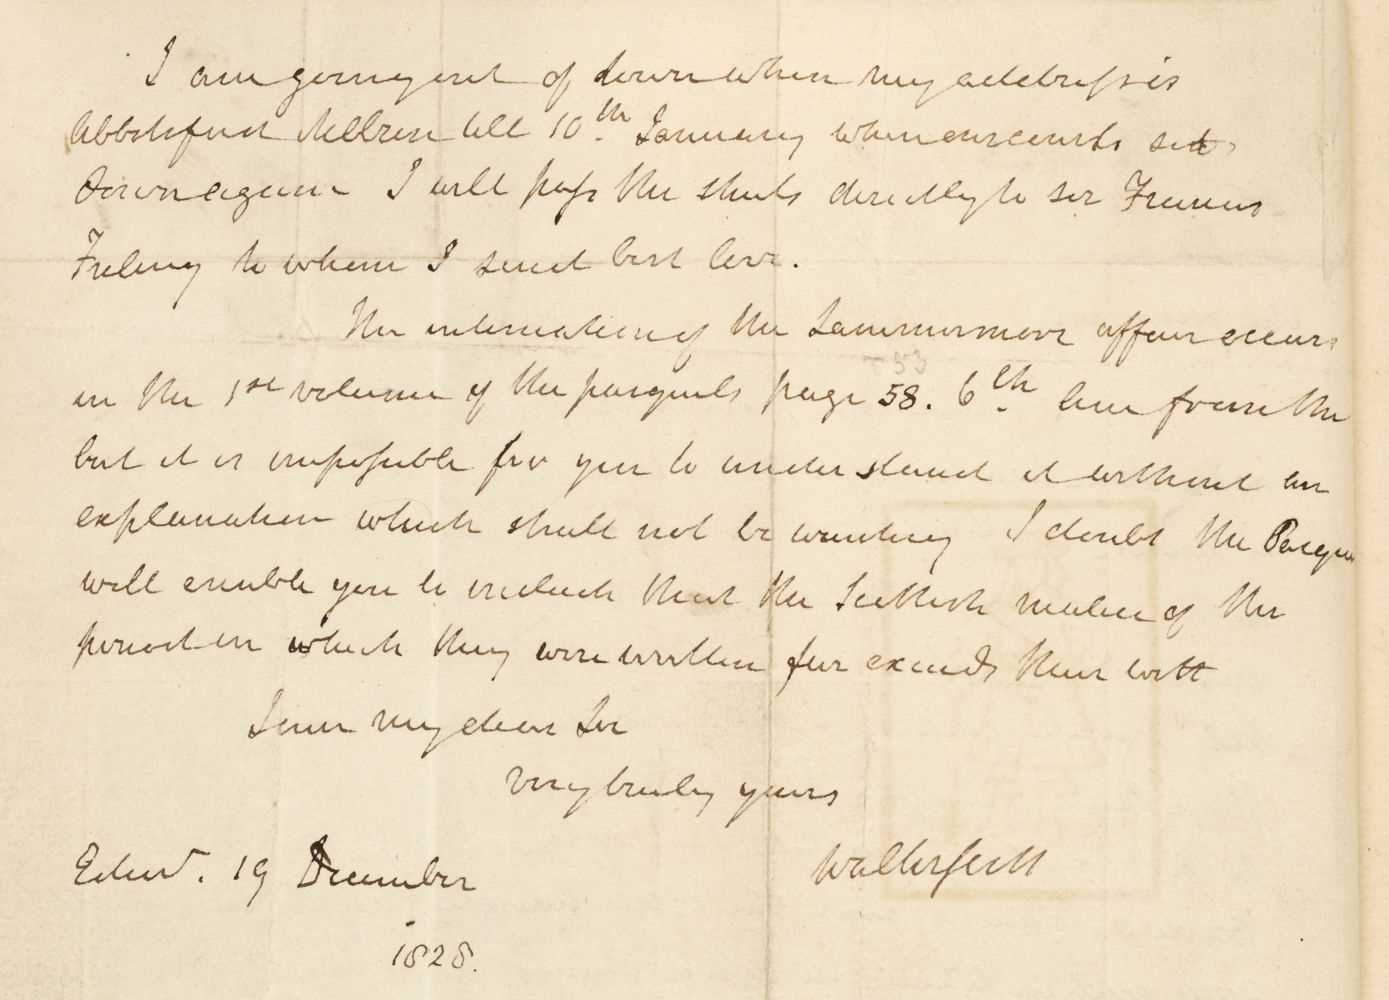 I am going out of town when my address is
Abbotsford Melrose till 10th. January when our courts sit
down again I will pass the sheets directly to Sir Francis
Freling to whom I send best love.
The intimation of the Lammermoor affair occurs
in the 1st volume of the pasquils page 58. 6th. line from the
but it is impossible for you to understand it without an
explanation which shall not be wanting I doubt the Pasqu
will enable you to that the Scottish malice of the
period in which they were written far exceeds their witt
I am my dear Sir
very truly yours
Walter Scott
Edinr. 19 December
1828.